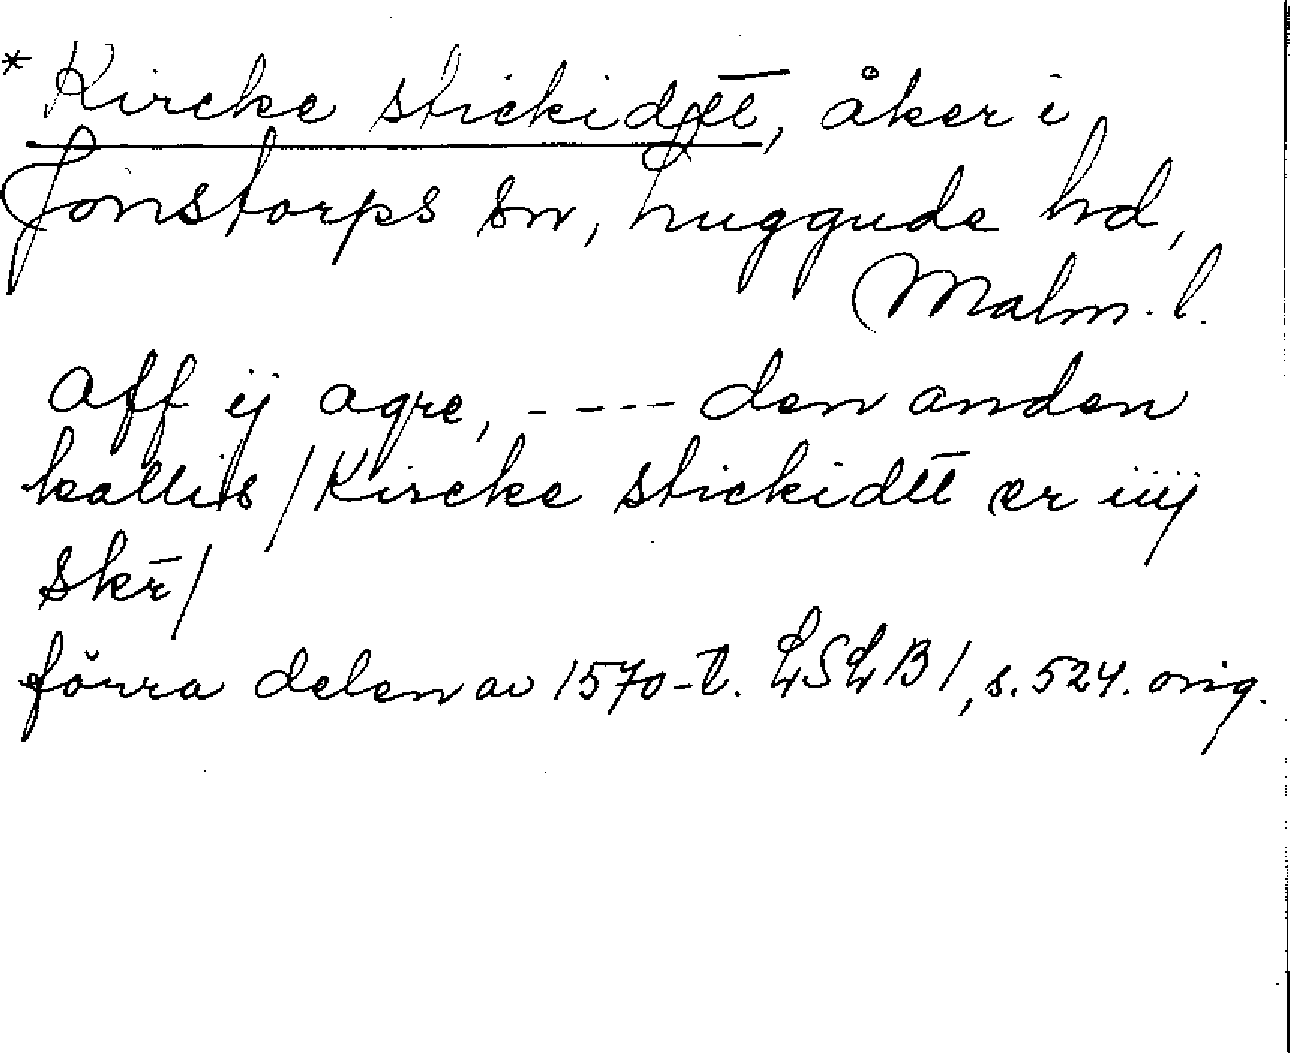 * Kircke stickidtt, åker i
Jonstorps sn, Luggude hd,
Malm. l.
Aff ij agre, - - - - den anden
kallis / Kircke stickidtt er iiij
skr̄ /
förra delen av 1570-t. LSLB 1, s. 524. orig.